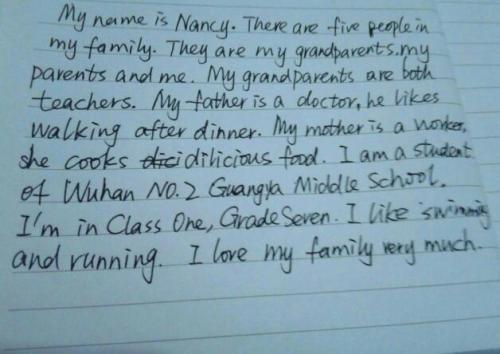 My name is Nancy. There are five people in
my family. They are my grandparents, my
parents and me. My grandparents are both
teachers. My father is a doctor, he likes
walking after dinner. My mother is a worker,
she cooks dilicious food. I am a student
of Wuhan NO.2 Guangya Middle School.
I'm in Class One, Grade Seven. I like swimming
and running. I love my family very much.